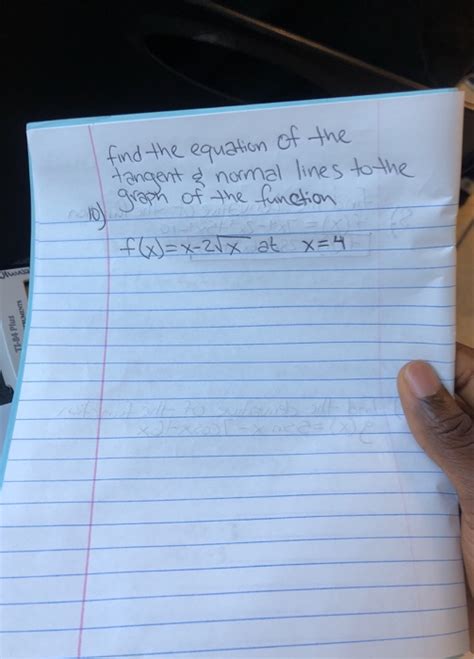 find the equation of the
tangent & normal lines to the
graph of the function
10)
f(x)=x-2√x at x=4
TI-84 Plus